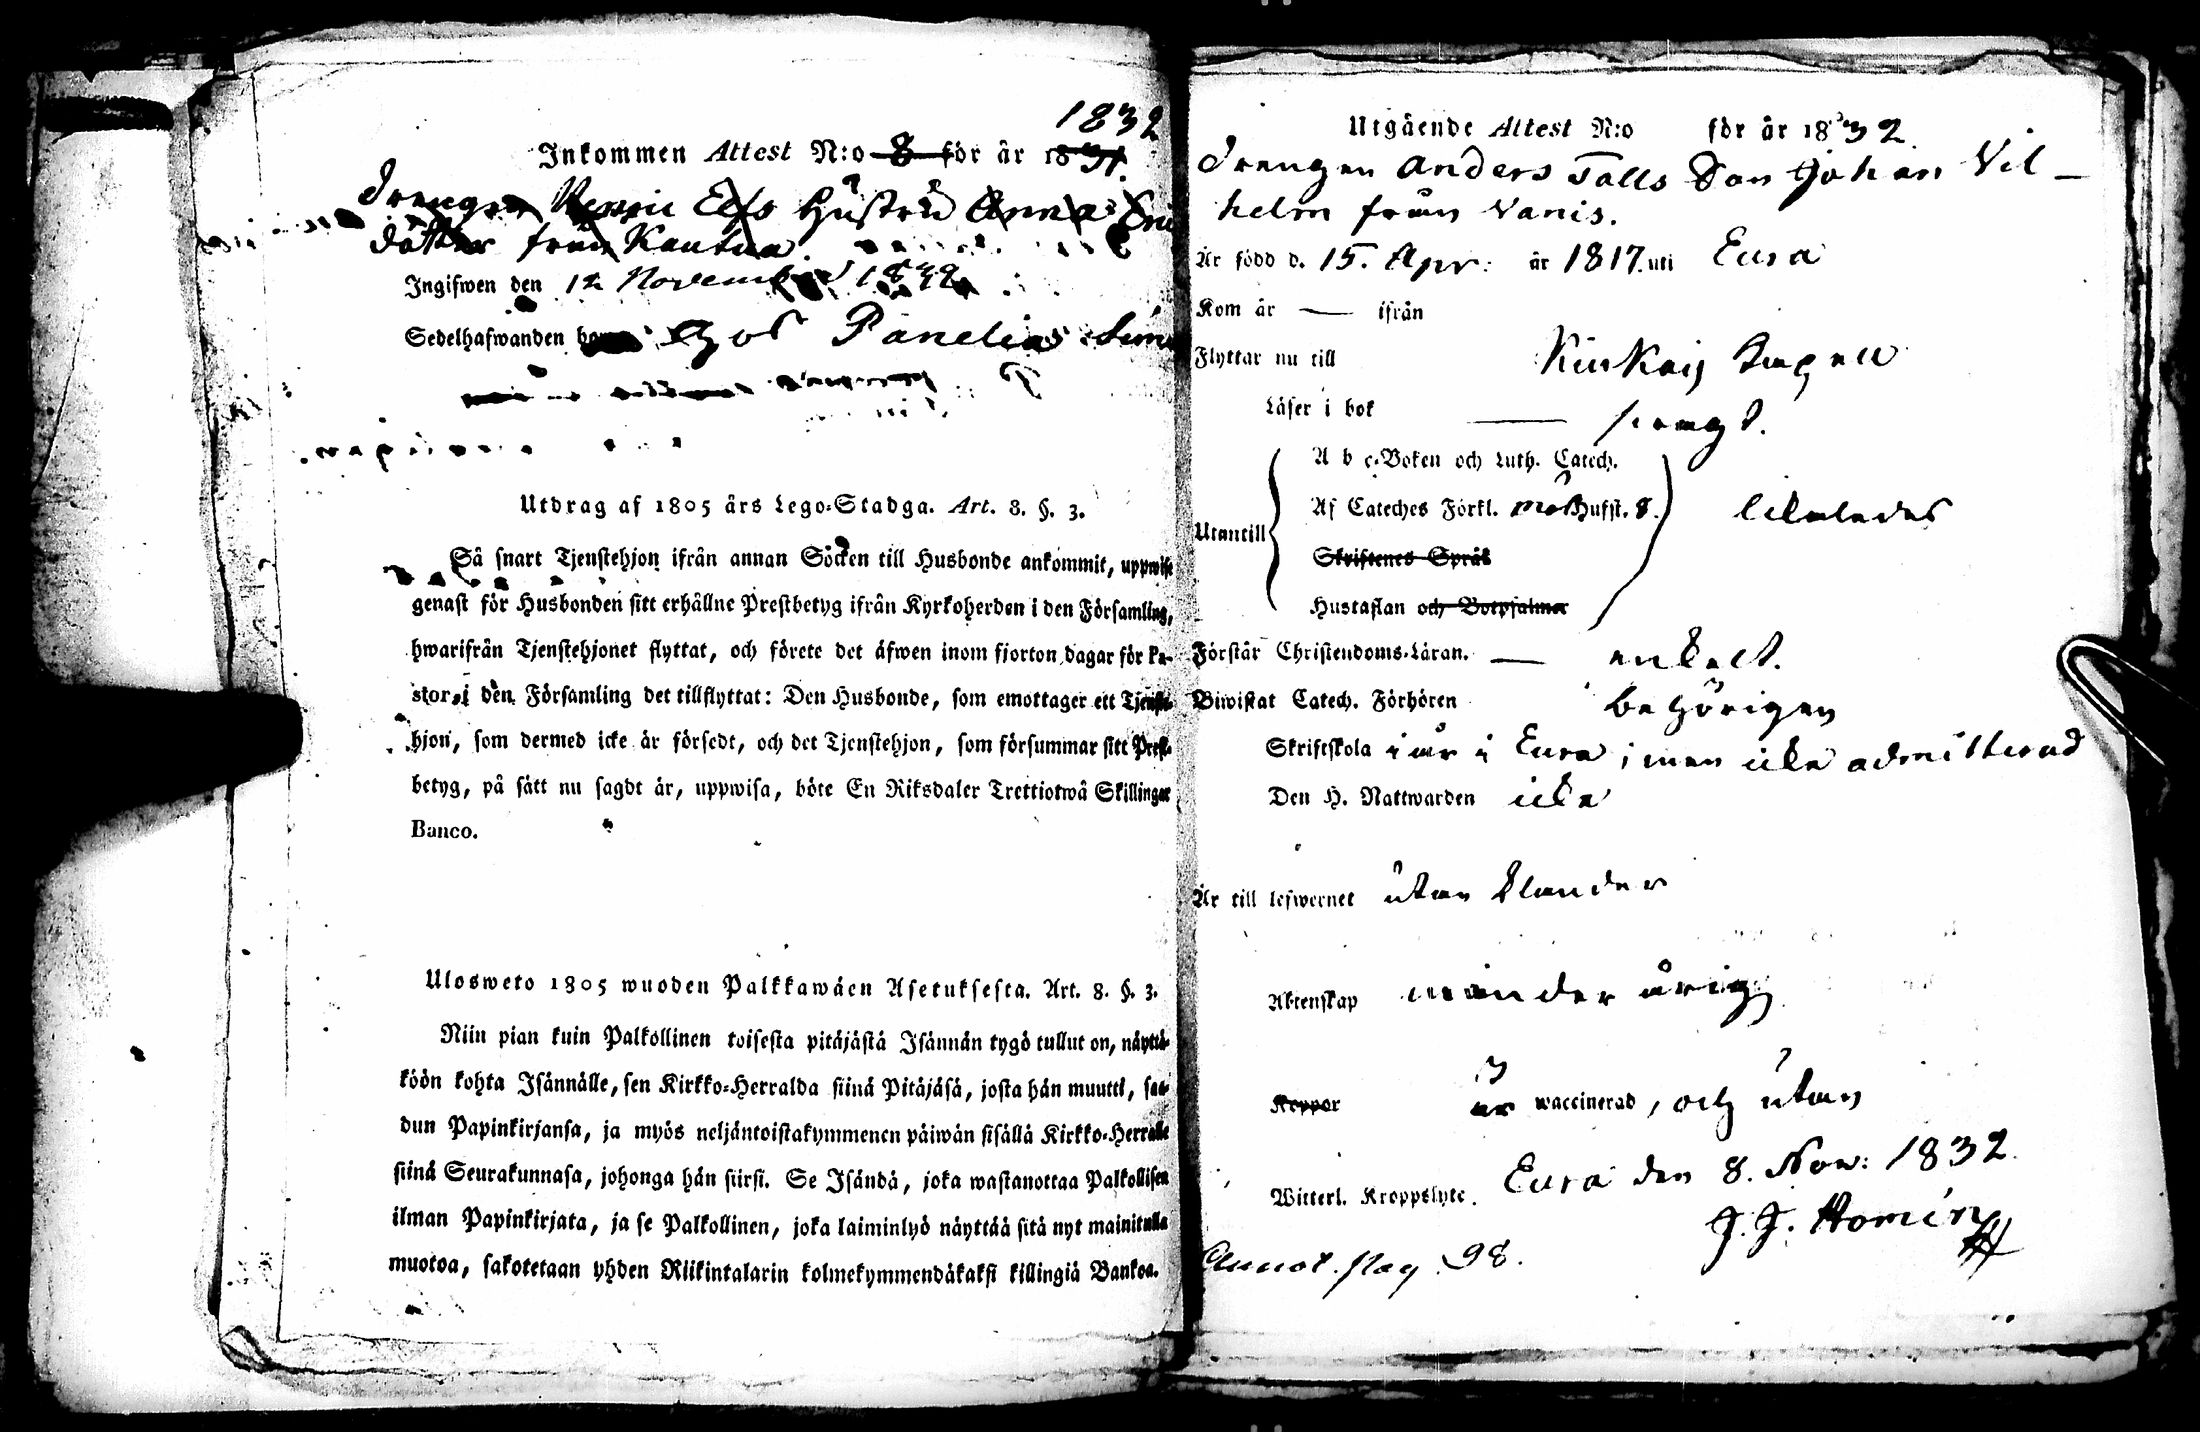 1832
Inkommen Attest N:o 8 för år 1831.
Drengen Elfs Hustru Anna
dotter från Kautua.
Ingifwen den 12 November 1832
Sedelhafwanden hos Panelia
Utdrag af 1805 års Lego-Stadga. Art. 8. §. 3.
Så snart Tjenstehjon ifrån annan Socken till Husbonde ankommit, uppwise
genast för Husbonden sitt erhållne Prestbetyg ifrån Kyrkoherden i den Församling,
hwarifrån Tjenstehjonet flyttat, och förete det äfwen inom fjorton dagar för Pa-
stor i den Församling det tillflyttat: Den Husbonde, som emottager ett Tjenste-
hjon, som dermed icke är försedt, och det Tjenstehjon, som försummar sitt Prest-
betyg, på sätt nu sagdt är, uppwisa, böte En Riksdaler Trettiotwå Skillingar
Banco.
Ulosweto 1805 wuoden Palkkawäen Asetuksesta. Art. 8. §. 3.
Niin pian kuin Palkollinen toisesta pitäjästä Isännän tygö tullut on, näyttä-
köön kohta Isännälle, sen Kirkko-Herralda siinä Pitäjäsä, josta hän muutti, saa-
dun Papinkirjansa, ja myös neljäntoistakymmenen päiwän sisällä Kirkko-Herralle
siinä Seurakunnasa, johonga hän siirsi. Se Isändä, joka wastanottaa Palkollisen
ilman Papinkirjata, ja se Palkollinen, joka laiminlyö näyttää sitä nyt mainitulla
muotoa, sakotetaan yhden Riikintalarin kolmekymmendäkaksi killingiä Bankoa.
Utgående Attest N:o för år 1832
Drengen Anders Talls Son Johan Vil-
helm från Vanis.
Är född d. 15. Apr: år 1817. uti Eura
Kom år — ifrån
Flyttar nu till Kiukais Capell
Läser i bok — svagt.
A b c-Boken och Luth. Catech.
Af Cateches Förkl. Hufst. 8. likaledes
Utantill
Skriftenes Språk
Hustaflan och Botpsalmer
Förstår Christendoms-Läran. — enkelt.
Biwistat Catech. Förhören behörigen
Skriftskola i år i Eura; men icke admitterad
Den H. Nattwarden icke
Är till lefwernet utan klander
Äktenskap minder årig
Koppor är waccinerad, och utan
Witterl. Kroppslyte. Eura den 8. Nov: 1832.
J. J. Homén
Annot. pag. 98.